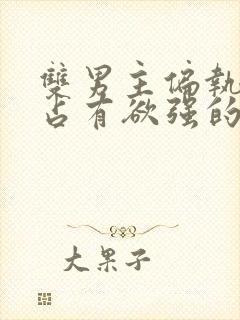 雙男主偏執
占有欲強的
大果子